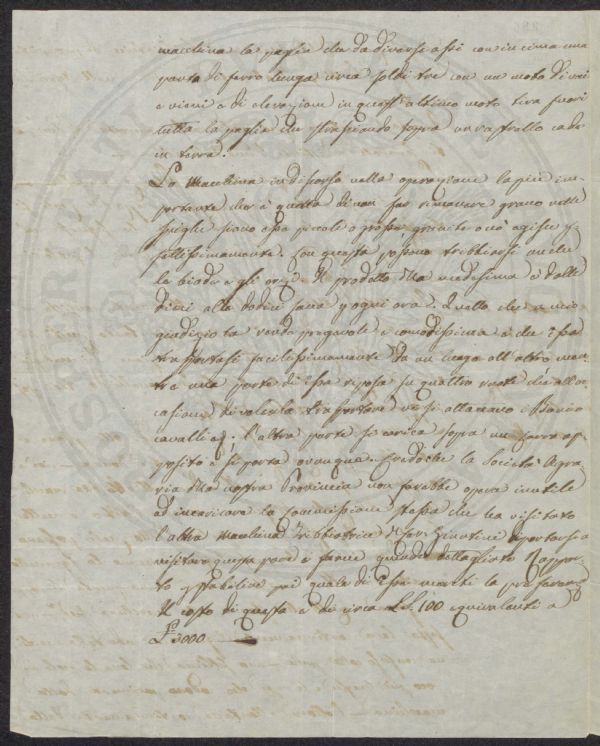 macchina la paglia che da diverse assi con in cima una
punta di ferro lunga circa soldi tre con un moto di vai
e vieni e di elevazione in quest'ultimo moto tira fuori
tutta la paglia che strasciando sopra un rastrello cade
in terra.
La Macchina in discorso nella operazione la più im-
portante che è quella di non far rimanere grano nelle
spighe siano esse piccole o grosse grencite o nò agisce per
fettissimamente. Con questa possono tribbiarsi anche
le biade e gli orzi. Il prodotto della medesima è dalle
dieci alle dodici saca per ogni ora. Quello che a mio
giudizio la rende pregevole e comodissima è che essa
trasportasi facilissimamente da un luogo all'altro men-
tre una parte di essa riposa su quattro ruote che all'oc-
casione di volerla trasportare vi si attaccano i Bovi o
cavalli &; l'altra parte si carica sopra un carro ap-
posito e si porta ovunque. Credo che la Società Agra-
ria della nostra Provincia non farebbe opera inutile
ad incaricare la Commissione stessa che ha visitato
l'altra Macchina Tribbiatrice del Sar. Ginotini di portarsi a
visitare questa pure e farne quindi dettagliato Rappor-
to per stabilire poi quale di esse meriti la preferenza
Il costo di questa è di circa LS. 100 equivalenti a
L. 3000